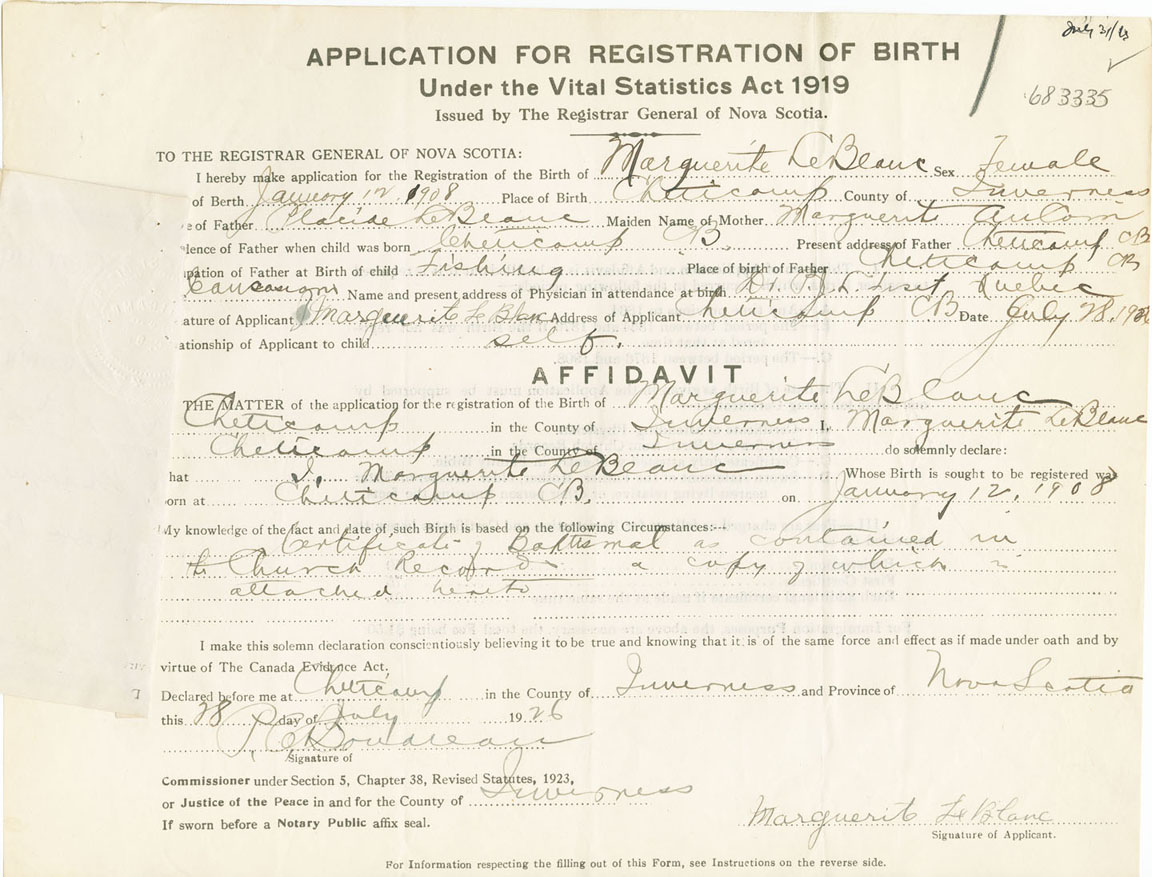 July 31/
683335
APPLICATION FOR REGISTRATION OF BIRTH
Under the Vital Statistics Act 1919
Issued by The Registrar General of Nova Scotia.
TO THE REGISTRAR GENERAL OF NOVA SCOTIA:
I hereby make application for the Registration of the Birth of Marguerite LeBlanc Sex Female
of Berth January 12, 1908 Place of Birth Cheticamp County of Inverness
e of Father Placide LeBlanc Maiden Name of Mother Marguerite
lence of Father when child was born Cheticamp CB. Present address of Father Cheticamp CB
pation of Father at Birth of child Fishing Place of birth of Father Cheticamp CB
Name and present address of Physician in attendance at birth Dr. Quebec
ature of Applicant Marguerite LeBlanc Address of Applicant Cheticamp CB Date July 28, 1926
ationship of Applicant to child self.
AFFIDAVIT
THE MATTER of the application for the registration of the Birth of Marguerite LeBlanc
Cheticamp in the County of Inverness I, Marguerite LeBlanc
Cheticamp in the County of Inverness do solemnly declare:
hat I, Marguerite LeBlanc Whose Birth is sought to be registered was
orn at Cheticamp CB. on January 12, 1908
My knowledge of the fact and date of such Birth is based on the following Circumstances:--
Certificate of Baptismal as contained in
the Church Records a copy of which is
attached hereto
I make this solemn declaration conscientiously believing it to be true and knowing that it is of the same force and effect as if made under oath and by
virtue of The Canada Evidence Act.
Declared before me at Cheticamp in the County of Inverness and Province of Nova Scotia
this 28 day of July 1926
Boudreau
Signature of
Commissioner under Section 5, Chapter 38, Revised Statutes, 1923,
or Justice of the Peace in and for the County of Inverness
If sworn before a Notary Public affix seal.
Marguerite LeBlanc
Signature of Applicant.
For Information respecting the filling out of this Form, see Instructions on the reverse side.